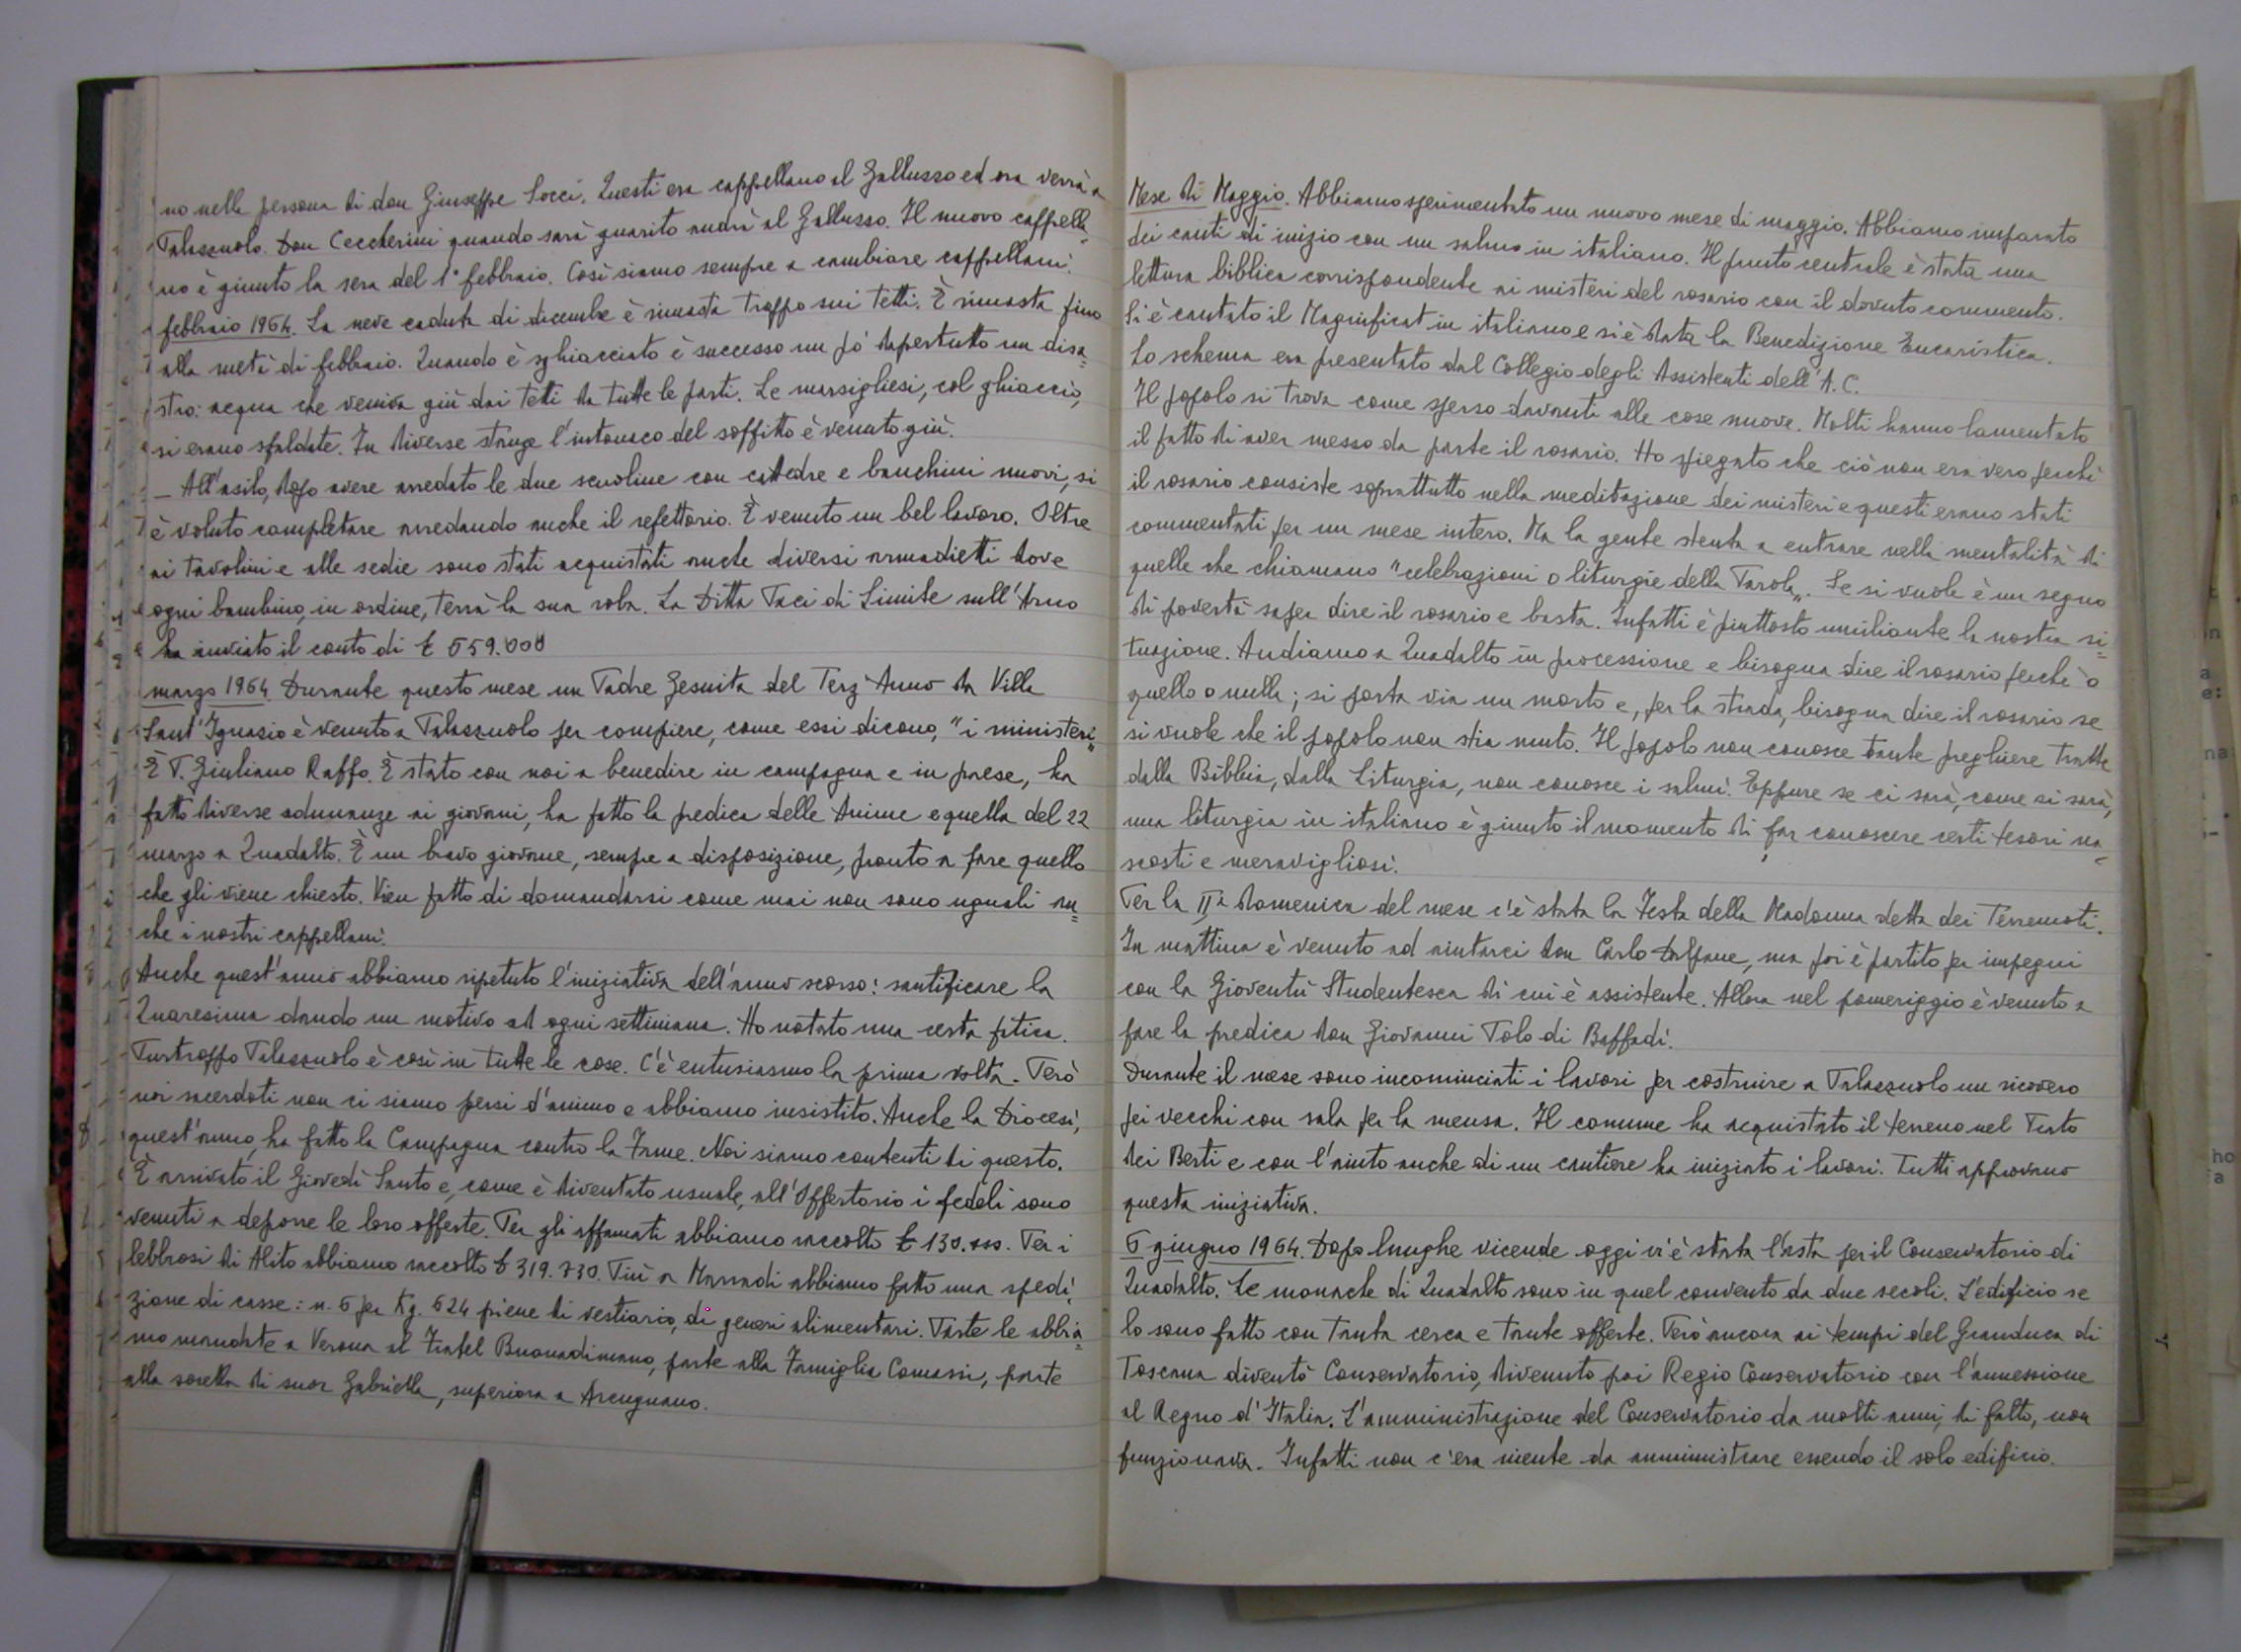 no nella persona di don Giuseppe Socci. Questi era cappellano al Galluzzo ed ora verrà a
Palazzuolo. Don Ceccherini quando sarà guarito andrà al Galluzzo. Il nuovo cappella=
no è giunto la sera del 1° febbraio. Così siamo sempre a cambiare cappellani.
febbraio 1964. La neve caduta di dicembre è rimasta troppo sui tetti. È rimasta fino
alla metà di febbraio. Quando è sghiacciato è successo un pò dapertutto un disa=
stro: acqua che veniva giù dai tetti da tutte le parti. Le marsigliesi, col ghiaccio,
si erano sfaldate. In diverse stanze l'intonaco del soffitto è venuto giù.
– All'asilo, dopo avere arredato le due scuoline con cattedre e banchini nuovi, si
è voluto completare arredando anche il refettorio. È venuto un bel lavoro. Oltre
ai tavolini e alle sedie sono stati acquistati anche diversi armadietti dove
ogni bambino, in ordine, terrà la sua roba. La Ditta Paci di Limite sull'Arno
ha inviato il conto di £ 559.000
marzo 1964. Durante questo mese un Padre Gesuita del Terz'Anno da Villa
Sant'Ignazio è venuto a Palazzuolo per compiere, come essi dicono, "i ministeri„
È P. Giuliano Raffo. È stato con noi a benedire in campagna e in paese, ha
fatto diverse adunanze ai giovani, ha fatto la predica delle Anime e quella del 22
marzo a Quadalto. È un bravo giovane, sempre a disposizione, pronto a fare quello
che gli viene chiesto. Vien fatto di domandarsi come mai non sono uguali an=
che i nostri cappellani.
Anche quest'anno abbiamo ripetuto l'iniziativa dell'anno scorso: santificare la
Quaresima dando un motivo ad ogni settimana. Ho notato una certa fatica.
Purtroppo Palazzuolo è così in tutte le cose. C'è entusiasmo la prima volta. Però
noi sacerdoti non ci siamo persi d'animo e abbiamo insistito. Anche la Diocesi,
quest'anno, ha fatto la Campagna contro la Fame. Noi siamo contenti di questo.
È arrivato il Giovedì Santo e, come è diventato usuale, all'Offertorio i fedeli sono
venuti a deporre le loro offerte. Per gli affamati abbiamo raccolto £ 130.000. Per i
lebbrosi di Alito abbiamo raccolto £ 319.730. Più a Marradi abbiamo fatto una spedi=
zione di casse: n. 6 per Kg. 624 piene di vestiario, di generi alimentari. Parte le abbia=
mo mandate a Verona al Fratel Buonadimano, parte alla Famiglia Comassi, parte
alla sorella di suor Gabriella, superiora a Arcugnano.
Mese di Maggio. Abbiamo sperimentato un nuovo mese di maggio. Abbiamo imparato
dei canti di inizio con un salmo in italiano. Il punto centrale è stata una
lettura biblica corrispondente ai misteri del rosario con il dovuto commento.
Si è cantato il Magnificat in italiano e si è data la Benedizione Eucaristica.
Lo schema era presentato dal Collegio degli Assistenti dell'A.C.
Il popolo si trova come sperso davanti alle cose nuove. Molti hanno lamentato
il fatto di aver messo da parte il rosario. Ho spiegato che ciò non era vero perchè
il rosario consiste soprattutto nella meditazione dei misteri e questi erano stati
commentati per un mese intero. Ma la gente stenta a entrare nella mentalità di
quelle che chiamano "celebrazioni o liturgie della Parola„. Se si vuole è un segno
di povertà saper dire il rosario e basta. Infatti è piuttosto umiliante la nostra si=
tuazione. Andiamo a Quadalto in processione e bisogna dire il rosario perchè o
quello o nulla; si porta via un morto e, per la strada, bisogna dire il rosario se
si vuole che il popolo non stia muto. Il popolo non conosce tante preghiere tratte
dalla Bibbia, dalla Liturgia, non conosce i salmi. Eppure se ci sarà, come si sarà,
una liturgia in italiano è giunto il momento di far conoscere certi tesori na=
scosti e meravigliosi.
Per la IIª Domenica del mese c'è stata la Festa della Madonna detta dei Terremoti.
In mattina è venuto ad aiutarci don Carlo Dalpane, ma poi è partito per impegni
con la Gioventù Studentesca di cui è assistente. Allora nel pomeriggio è venuto a
fare la predica don Giovanni Polo di Baffadi.
Durante il mese sono incominciati i lavori per costruire a Palazzuolo un ricovero
pei vecchi con sala per la mensa. Il comune ha acquistato il terreno nel Prato
dei Berti e con l'aiuto anche di un cantiere ha iniziato i lavori. Tutti approvano
questa iniziativa.
6 giugno 1964. Dopo lunghe vicende oggi vi è stata l'asta per il Conservatorio di
Quadalto. Le monache di Quadalto sono in quel convento da due secoli. L'edificio se
lo sono fatto con tanta cerca e tante offerte. Però ancora ai tempi del Granduca di
Toscana diventò Conservatorio, divenuto poi Regio Conservatorio con l'annessione
al Regno d'Italia. L'amministrazione del Conservatorio da molti anni, di fatto, non
funzionava. Infatti non c'era niente da amministrare essendo il solo edificio.